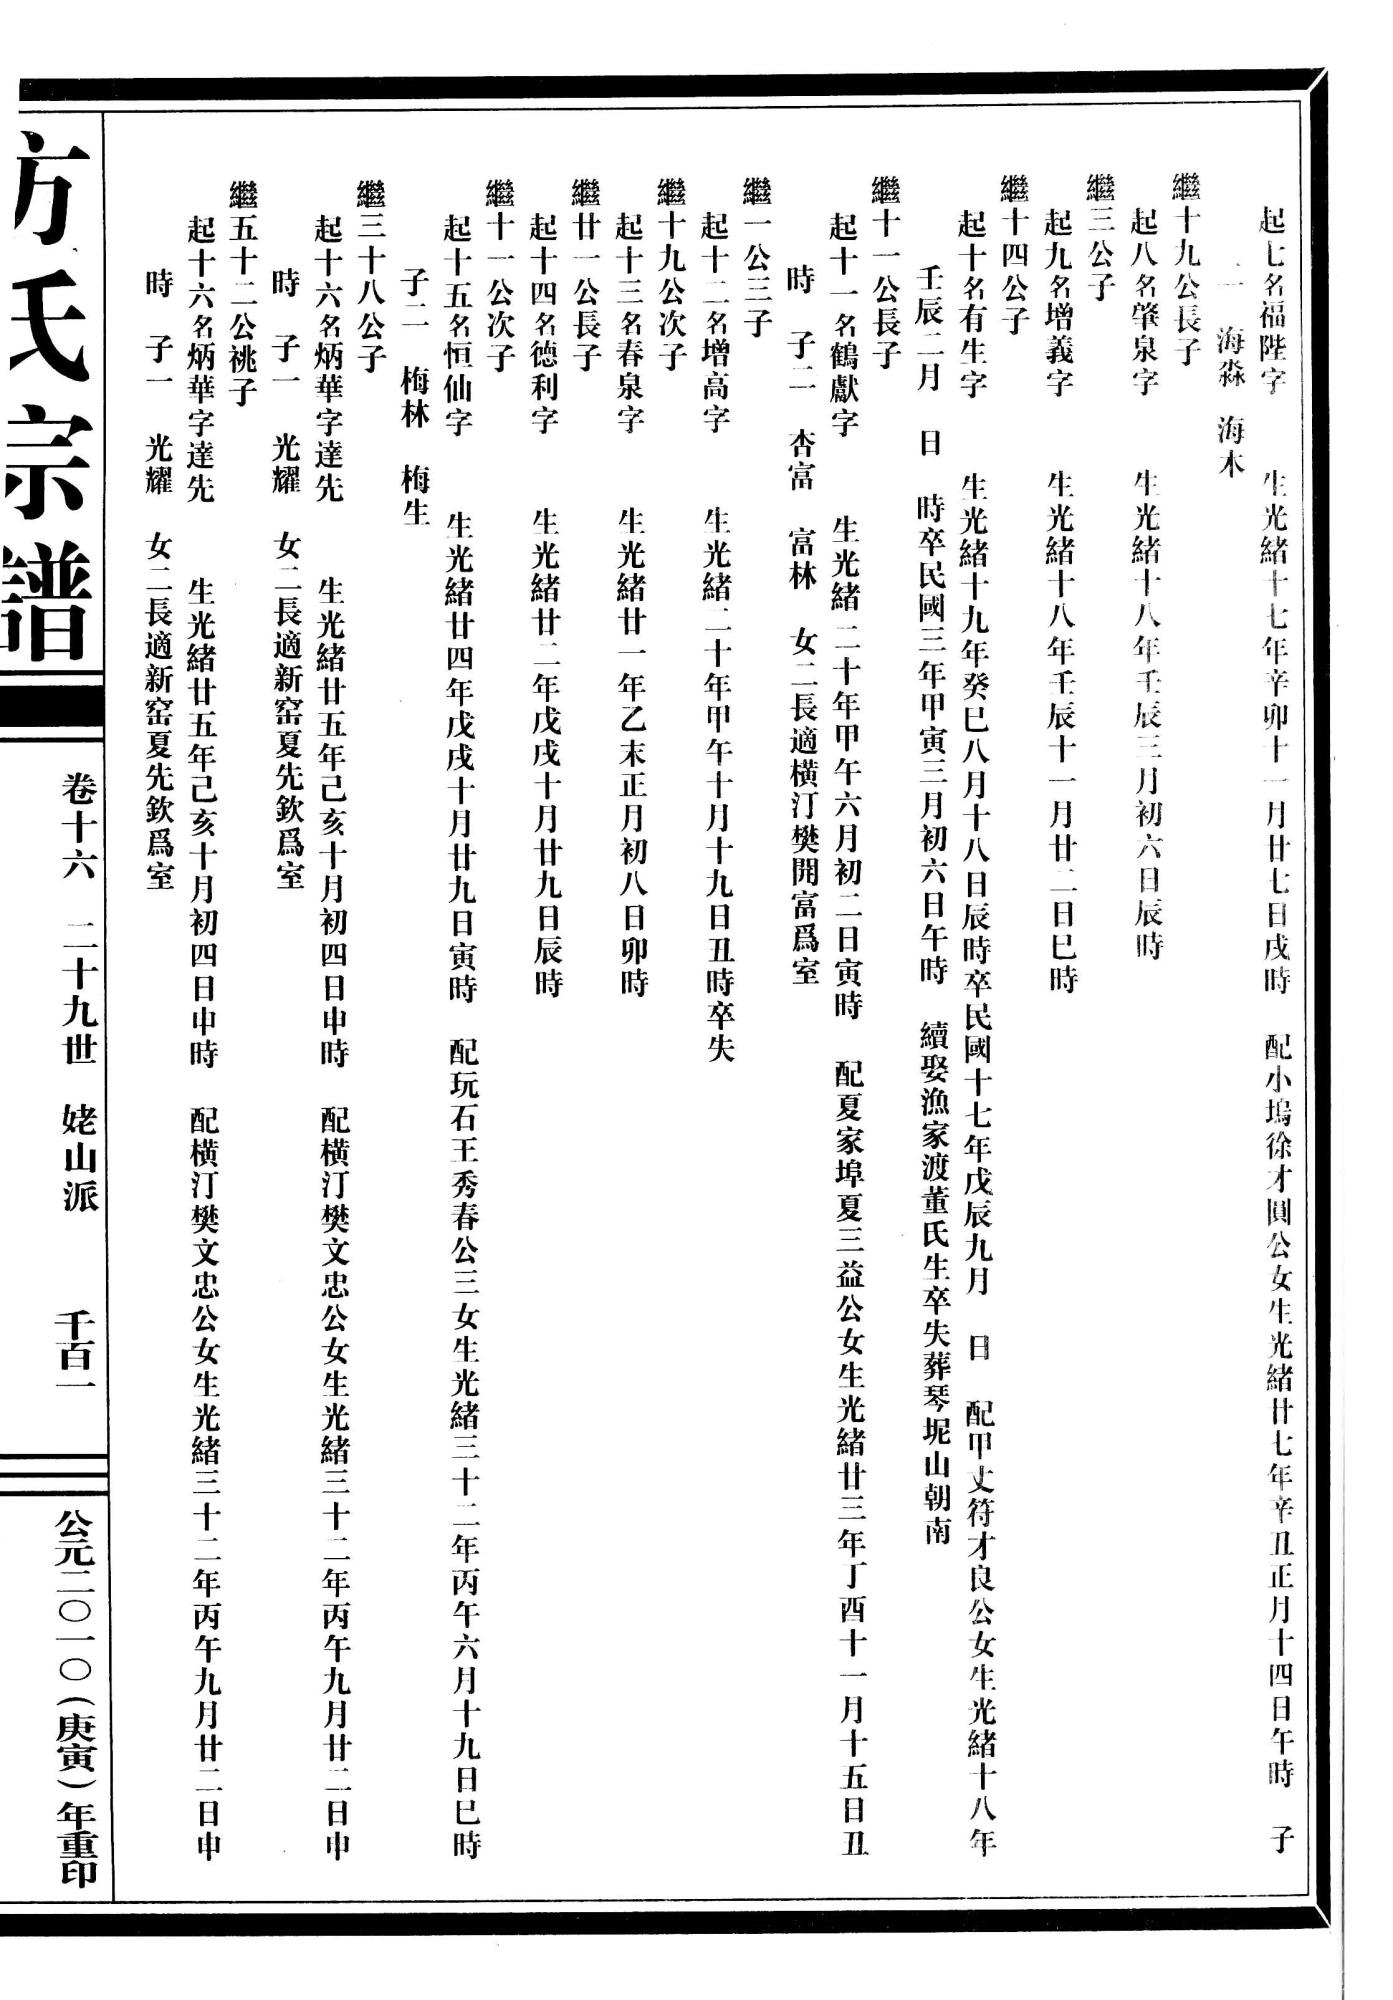 起七名福陛字 生光緒十七年辛卯十一月廿七日戌時 配小塢徐才圓公女生光緒廿七年辛丑正月十四日午時 子
二 海淼 海木
繼十九公長子
起八名肇泉字 生光緒十八年壬辰三月初六日辰時
繼三公子
起九名增義字 生光緒十八年壬辰十一月廿二日巳時
繼十四公子
起十名有生字 生光緒十九年癸巳八月十八日辰時卒民國十七年戊辰九月 日 配甲丈符才良公女生光緒十八年
壬辰二月 日 時卒民國三年甲寅三月初六日午時 續娶漁家渡董氏生卒失葬琴坭山朝南
繼十一公長子
起十一名鶴獻字 生光緒二十年甲午六月初二日寅時 配夏家埠夏三益公女生光緒廿三年丁酉十一月十五日丑
時 子二 杏富 富林 女二長適橫汀樊開富爲室
繼一公三子
起十二名增高字 生光緒二十年甲午十月十九日丑時卒失
繼十九公次子
起十三名春泉字 生光緒廿一年乙未正月初八日卯時
繼廿一公長子
起十四名德利字 生光緒廿二年戊戌十月廿九日辰時
繼十一公次子
起十五名恒仙字 生光緒廿四年戊戌十月廿九日寅時 配玩石王秀春公三女生光緒三十二年丙午六月十九日巳時
子二 梅林 梅生
繼三十八公子
起十六名炳華字達先 生光緒廿五年己亥十月初四日申時 配橫汀樊文忠公女生光緒三十二年丙午九月廿二日申
時 子一 光耀 女二長適新窑夏先欽爲室
繼五十二公祧子
起十六名炳華字達先 生光緒廿五年己亥十月初四日申時 配橫汀樊文忠公女生光緒三十二年丙午九月廿二日申
時 子一 光耀 女二長適新窑夏先欽爲室
方氏宗譜
卷十六 二十九世 姥山派 千百一
公元二〇一〇(庚寅)年重印